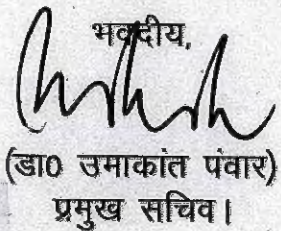 भवदीय,
(डा0 उमाकांत पंवार)
प्रमुख सचिव।